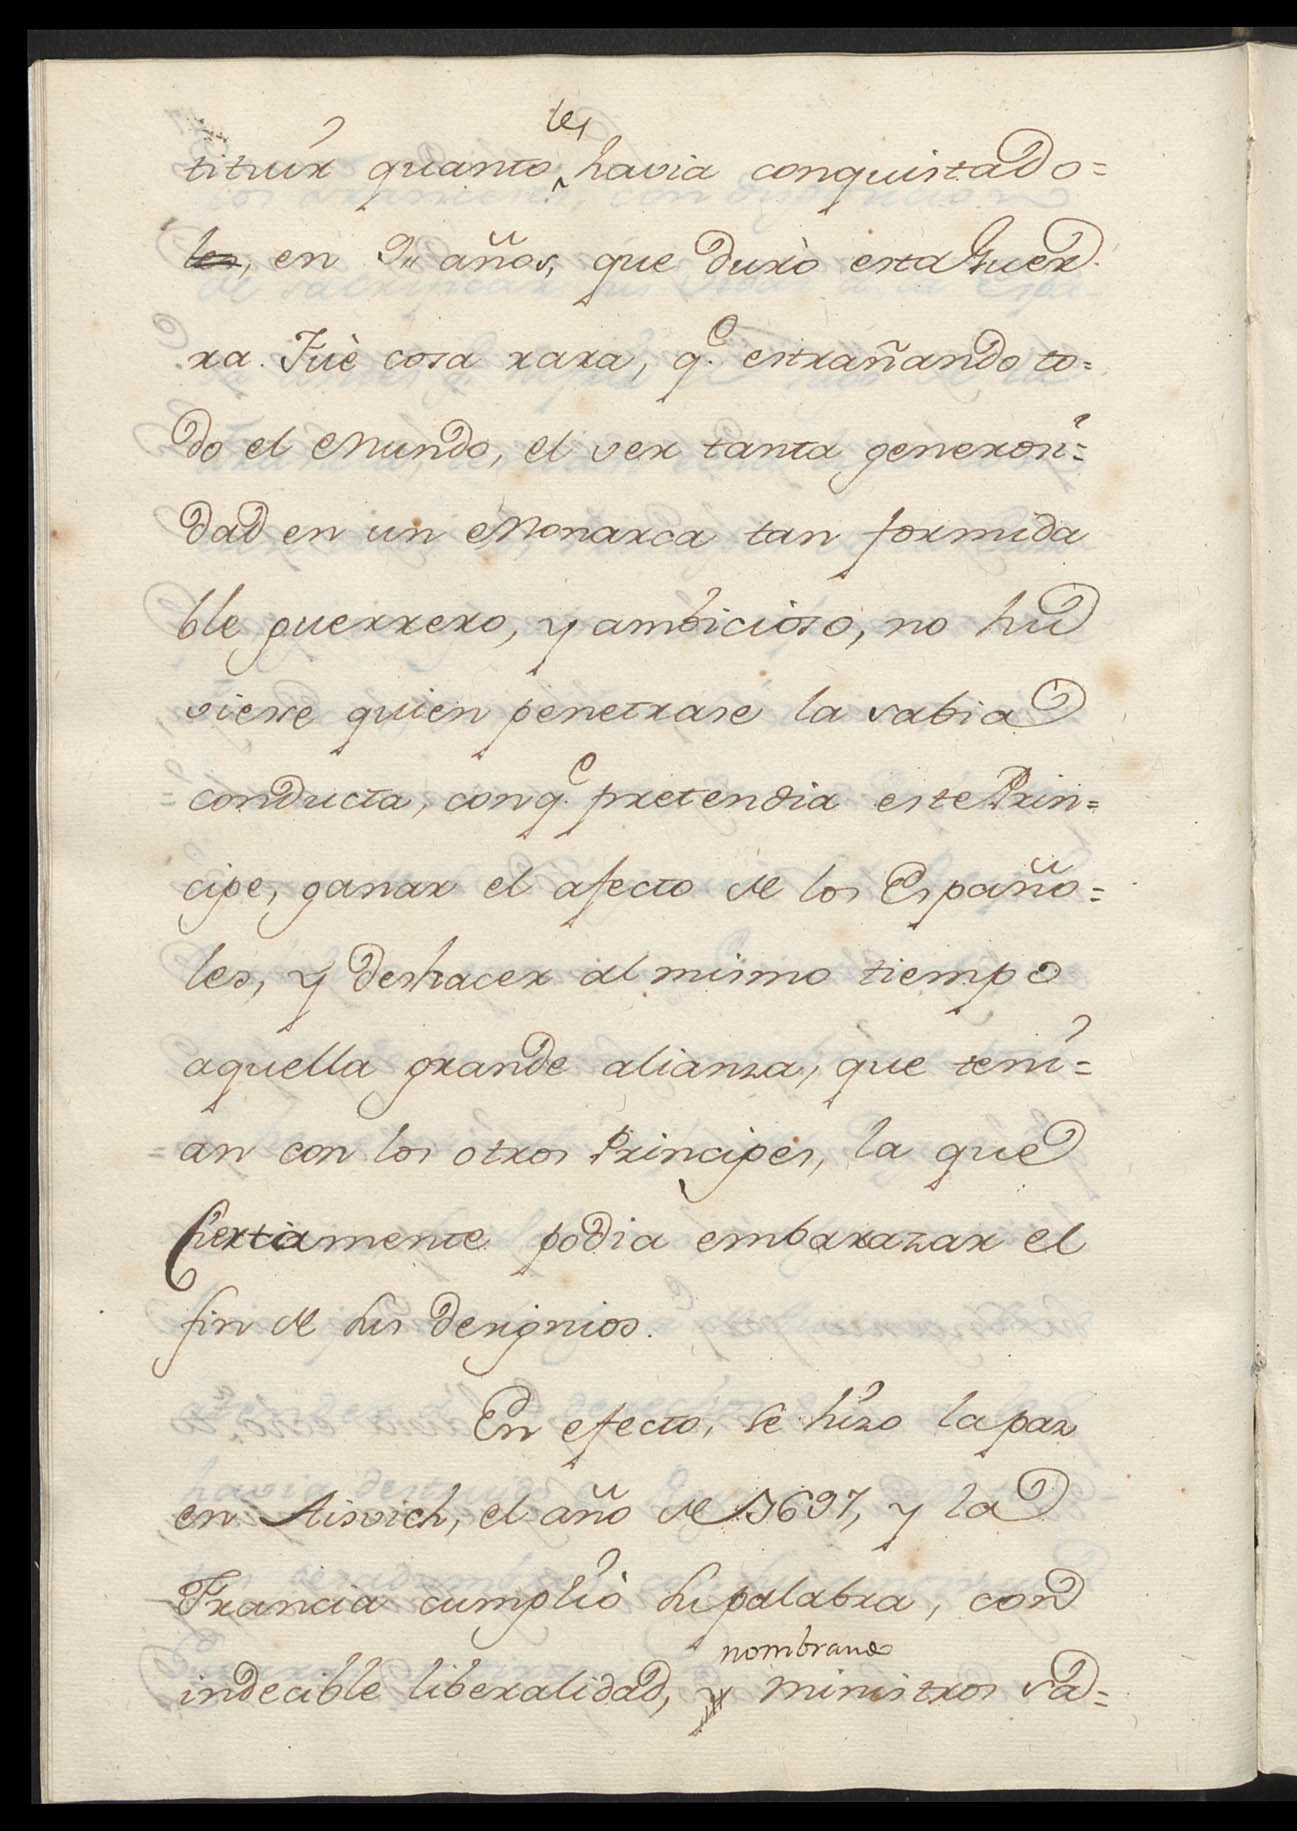 les
tituir quanto havia conquistado=
les, en 9,, años, que durò esta Guer
ra. Fuè cosa rara, q.e estrañando to=
do el Mundo, el ver tanta generosi=
dad en un Monarca tan formida
ble guerrero, y ambicioso, no hu
viese quien penetrase la sabia
conducta, con q.e pretendia este Prin=
cipe, ganar el afecto de los Españo=
les, y deshacer al mismo tiempo
aquella grande alianza, que teni=
an con los otros Principes, la que
Ciertamente podia embarazar el
fin de sus designios.
En efecto, se hizo la paz
en Risvich, el año de 1697, y la
Francia cumpliò su palabra, con
nombrando
indecible liberalidad, y ministros sa=